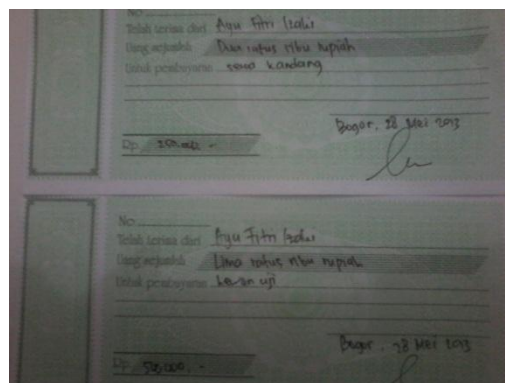 No
Telah terima dari Ayu Fitri
Uang sejumlah Dua ratus ribu rupiah
Untuk pembayaran sewa kandang
Bogor, 28 Mei 2013
Rp.
No
Telah terima dari Ayu Fitri
Uang sejumlah Lima ratus ribu rupiah
Untuk pembayaran hewan uji
Bogor, 28 Mei 2013
Rp. 500.000, -